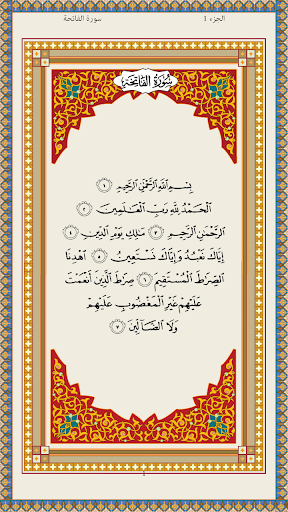 الجزء 1
سورة الفاتحة
سُورَةُ الفَاتِحَةِ
بِسْمِ اللَّهِ الرَّحْمَٰنِ الرَّحِيمِ ١
الْحَمْدُ لِلَّهِ رَبِّ الْعَالَمِينَ ٢
الرَّحْمَٰنِ الرَّحِيمِ ٣ مَالِكِ يَوْمِ الدِّينِ ٤
إِيَّاكَ نَعْبُدُ وَإِيَّاكَ نَسْتَعِينُ ٥ اهْدِنَا
الصِّرَاطَ الْمُسْتَقِيمَ ٦ صِرَاطَ الَّذِينَ أَنْعَمْتَ
عَلَيْهِمْ غَيْرِ الْمَغْضُوبِ عَلَيْهِمْ
وَلَا الضَّالِّينَ ٧
1